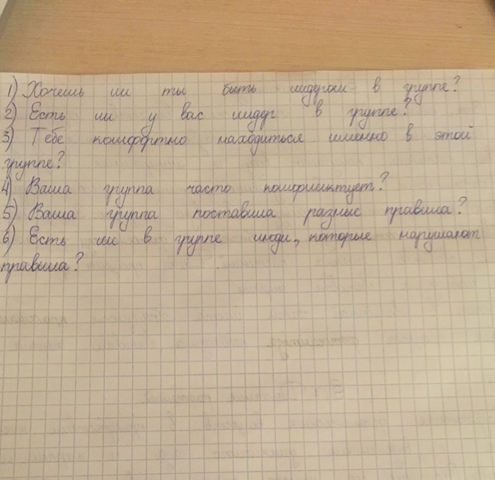 1) Хочешь ли ты быть лидером в группе?
2) Есть ли у вас лидер в группе?
3) Тебе комфортно находиться именно в этой
группе?
4) Ваша группа часто конфликтует?
5) Ваша группа поставила разные правила?
6) Есть ли в группе люди, которые нарушают
правила?